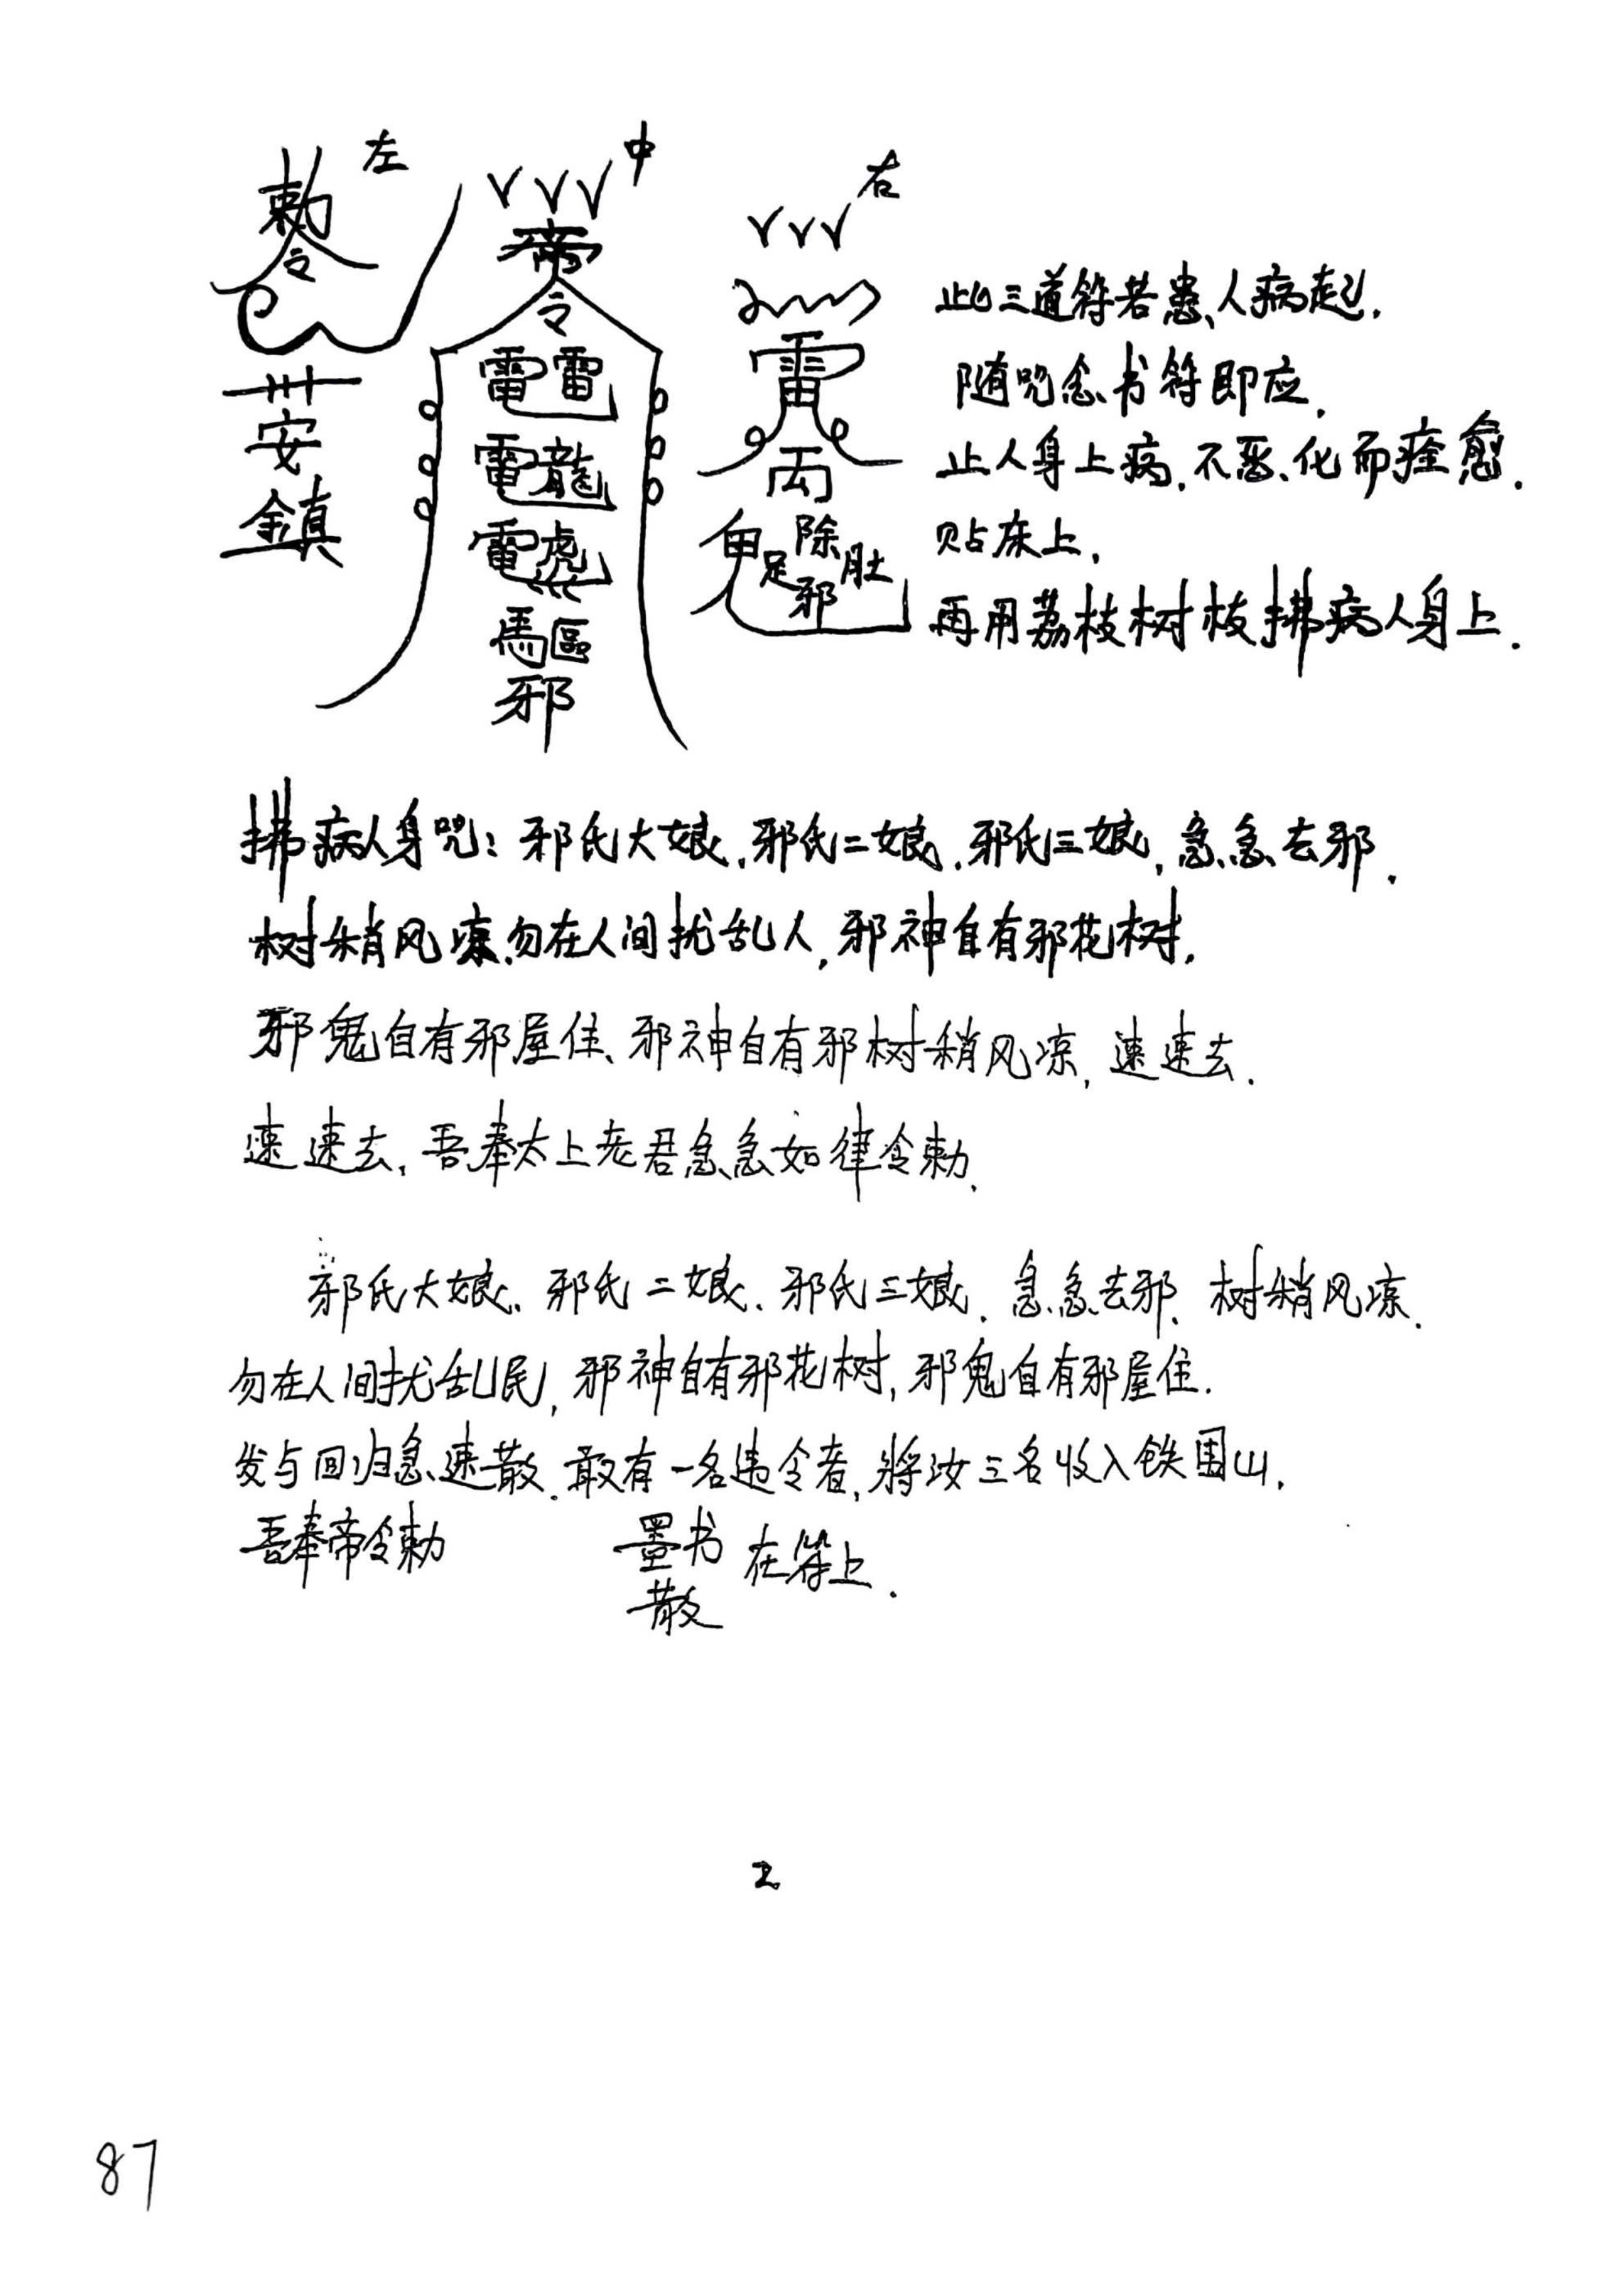 左
中
右
勅
令
安
鎮
帝
令
電雷
電龍
電虎
馬區
邪
雷
鬼足除邪肚
此三道符若患人病起.
随咒念书符即应.
止人身上病.不恶化而痊愈.
贴床上.
再用荔枝树枝拂病人身上.
拂病人身咒:邪氏大娘.邪氏二娘.邪氏三娘,急急去邪.
树稍风凉.勿在人间扰乱人,邪神自有邪花树.
邪鬼自有邪屋住、邪神自有邪树稍风凉,速速去.
速速去,吾奉太上老君急急如律令勅.
邪氏大娘、邪氏二娘.邪氏三娘.急急去邪.树稍风凉.
勿在人间扰乱民,邪神自有邪花树,邪鬼自有邪屋住.
发与回归急速散.敢有一名违令者,将汝三名收入铁围山.
吾奉帝令勅 墨书 在符上.
散
2
87